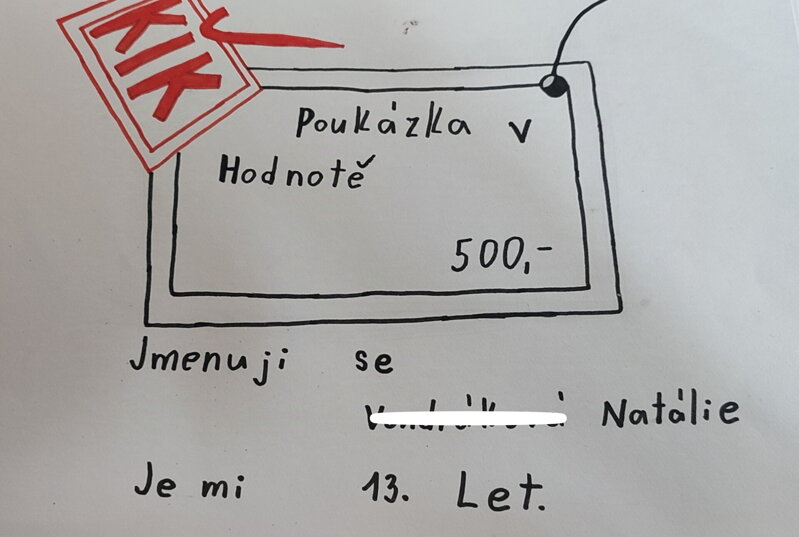 KIK
Poukázka v
Hodnotě
500,-
Jmenuji se
Natálie
Je mi 13. Let.